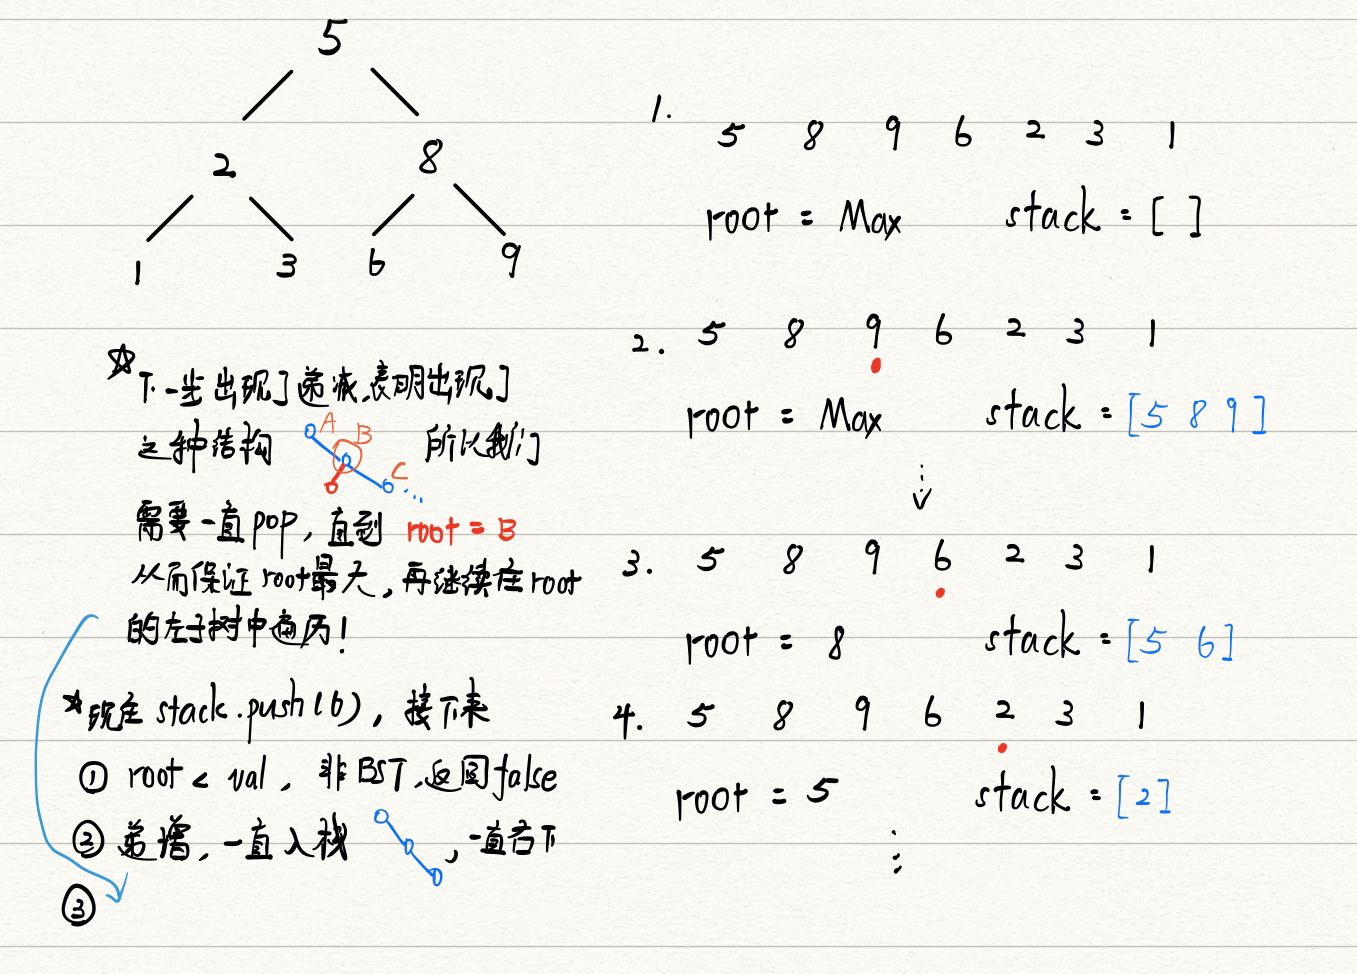 5
2 8
1 3 6 9
☆下一步出现了递减,表明出现了
这种结构 A B C ... 所以我们
需要一直pop, 直到 root = B
从而保证 root最大, 再继续在root
的左子树中遍历!
☆现在 stack.push(6), 接下来
① root < val, 非BST,返回false
② 递增, 一直入栈 , 一直右下
③
1. 5 8 9 6 2 3 1
root = Max stack = [ ]
2. 5 8 9 6 2 3 1
root = Max stack = [5 8 9]
3. 5 8 9 6 2 3 1
root = 8 stack = [5 6]
4. 5 8 9 6 2 3 1
root = 5 stack = [2]